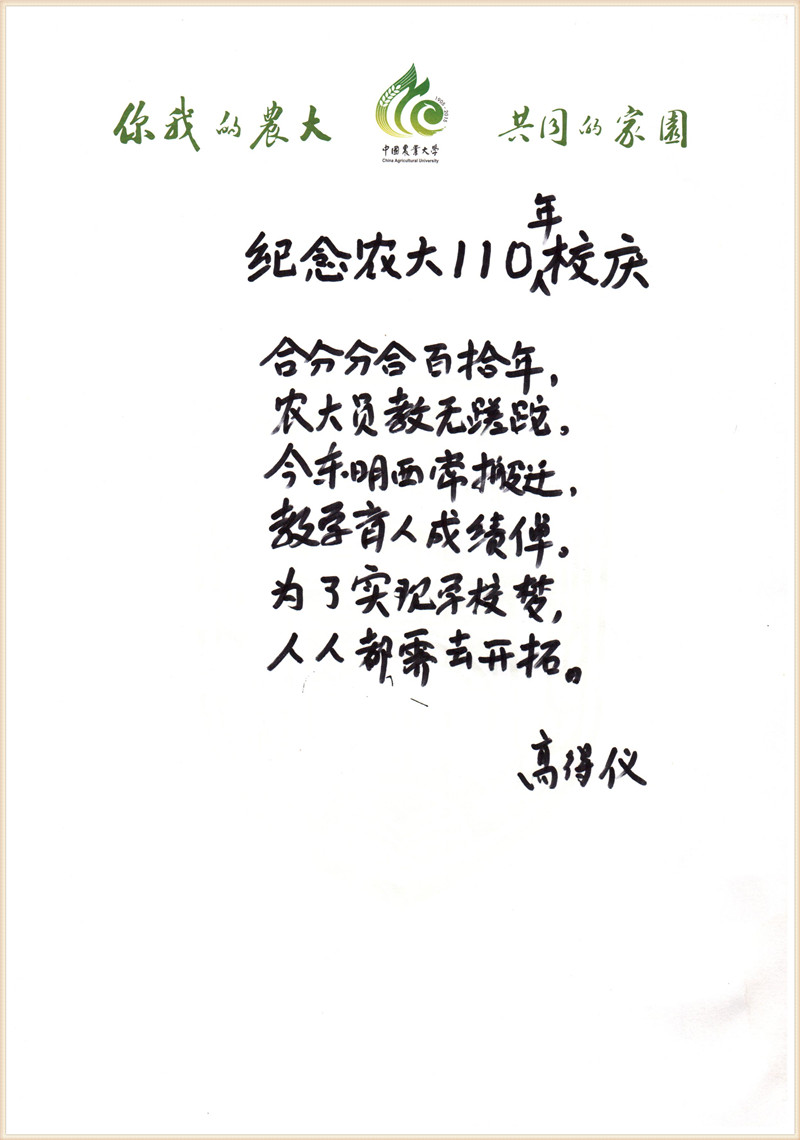 你我的農大 共同的家園
1905-2015
中国農業大学
China Agricultural University
纪念农大110年校庆
合分分合百拾年，
农大员教无蹉跎。
今东明西常搬迁，
教学育人成绩倬。
为了实现学校梦，
人人都需去开拓。
高得仪